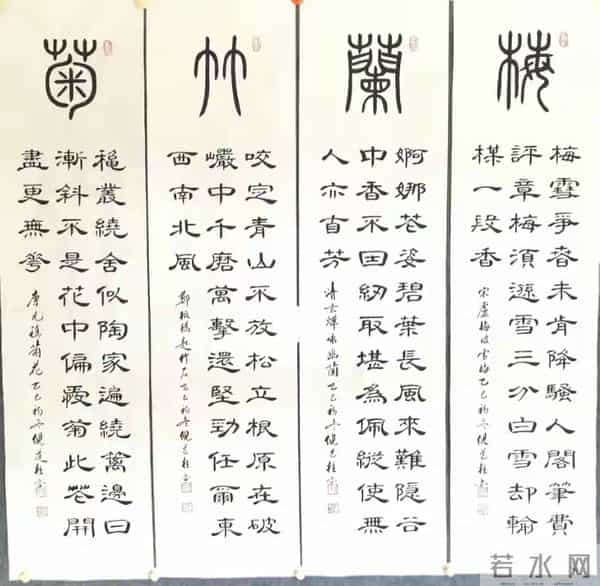 梅
梅雪爭春未肯降騷人閣筆費
評章梅須遜雪三分白雪却輸
楳一段香
宋盧梅坡雪梅乙巳初冬
蘭
婀娜花姿碧葉長風來難隱谷
中香不因紉取堪為佩縱使無
人亦自芳
清玄燁咏幽蘭乙巳初冬
竹
咬定青山不放松立根原在破
巖中千磨萬擊還堅勁任爾東
西南北風
鄭板橋題竹石乙巳初冬
菊
穐叢繞舍似陶家遍繞籬邊日
漸斜不是花中偏愛菊此花開
盡更無花
唐元稹菊花乙巳初冬
若水网